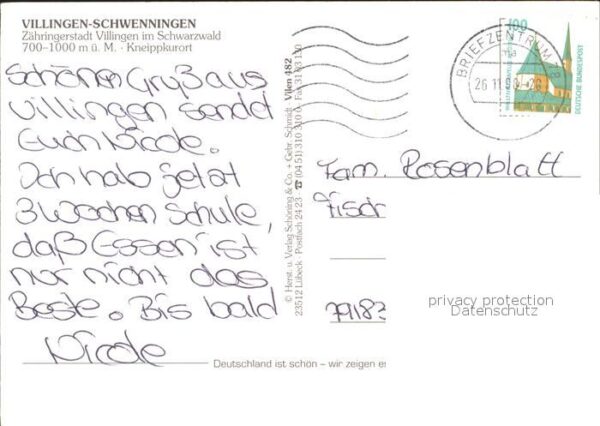 VILLINGEN-SCHWENNINGEN
Zähringerstadt Villingen im Schwarzwald
700-1000 m ü. M. · Kneippkurort
Schönen Gruß aus
Villingen sendet
Euch Nicole.
Ich hab jetzt
3 Wochen Schule,
daß Essen ist
nur nicht das
Beste. Bis bald
Nicole
© Herst. u. Verlag Schöning & Co. + Gebr. Schmidt · Vilen 482
23512 Lübeck · Postfach 24 23 · ☎ (04 51) 310 310
BRIEFZENTRUM
26.11.
100
DEUTSCHE BUNDESPOST
Fam. Rosenblatt
Fisch
79183
privacy protection
Datenschutz
Deutschland ist schön – wir zeigen es